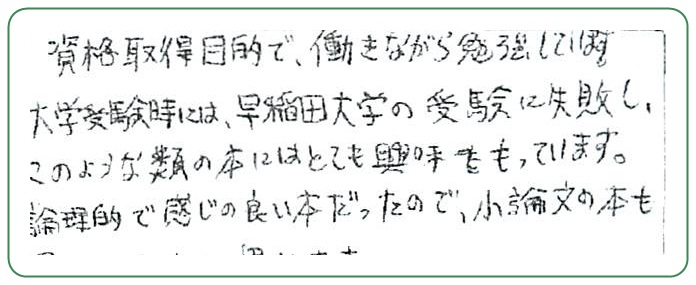 資格取得目的で、働きながら勉強しています
大学受験時には、早稲田大学の受験に失敗し、
このような類の本にはとても興味をもっています。
論理的で感じの良い本だったので、小論文の本も